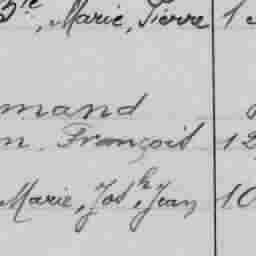 Bte, Marie, Pierre 1
mand
n. François 12
Marie, Josh, Jean 10